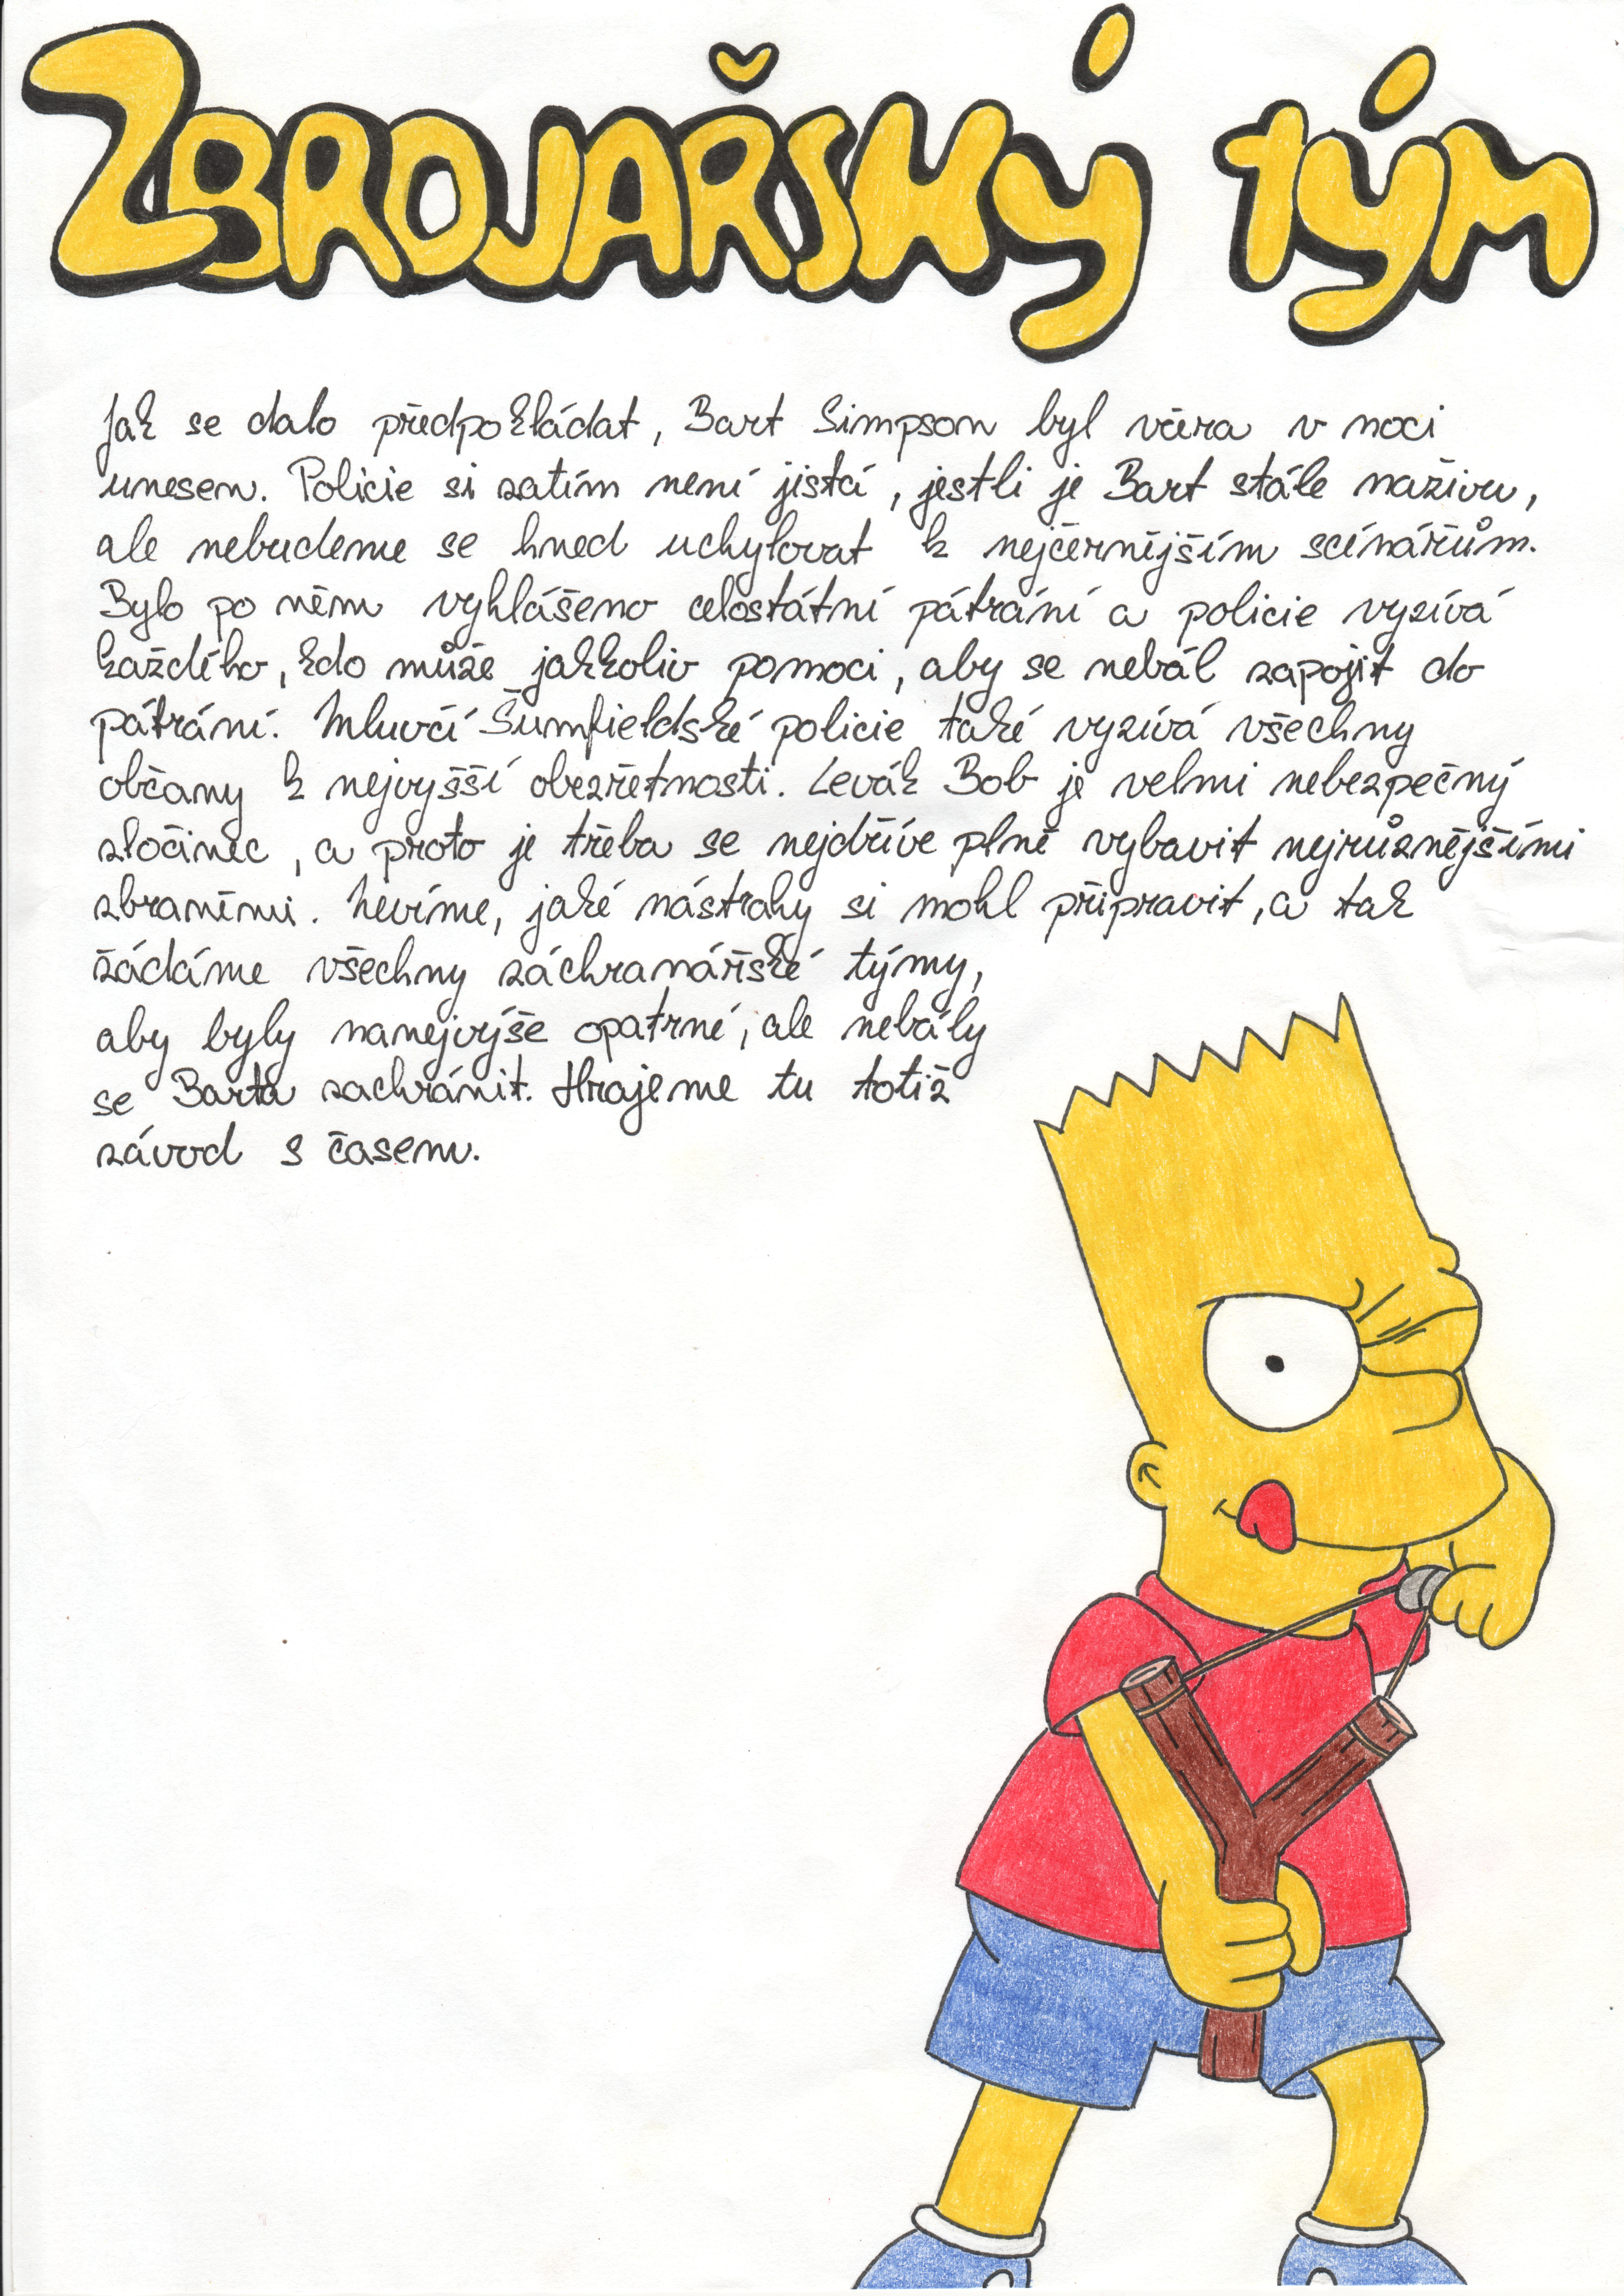 ZBROJAŘSKÝ tým
Jak se dalo předpokládat, Bart Simpson byl včera v noci
unesen. Policie si zatím není jistá, jestli je Bart stále naživu,
ale nebudeme se hned uchylovat k nejčernějším scénářům.
Bylo po něm vyhlášeno celostátní pátrání a policie vyzívá
každého, kdo může jakkoliv pomoci, aby se nebál zapojit do
pátrání. Mluvčí Šumfieldské policie také vyzívá všechny
občany k nejvyšší obezřetnosti. Levák Bob je velmi nebezpečný
zločinec, a proto je třeba se nejdříve plně vybavit nejrůznějšími
zbraněmi. Nevíme, jaké nástrahy si mohl připravit, a tak
žádáme všechny záchranářské týmy,
aby byly nanejvýše opatrné, ale nebály
se Barta zachránit. Hrajeme tu totiž
závod s časem.